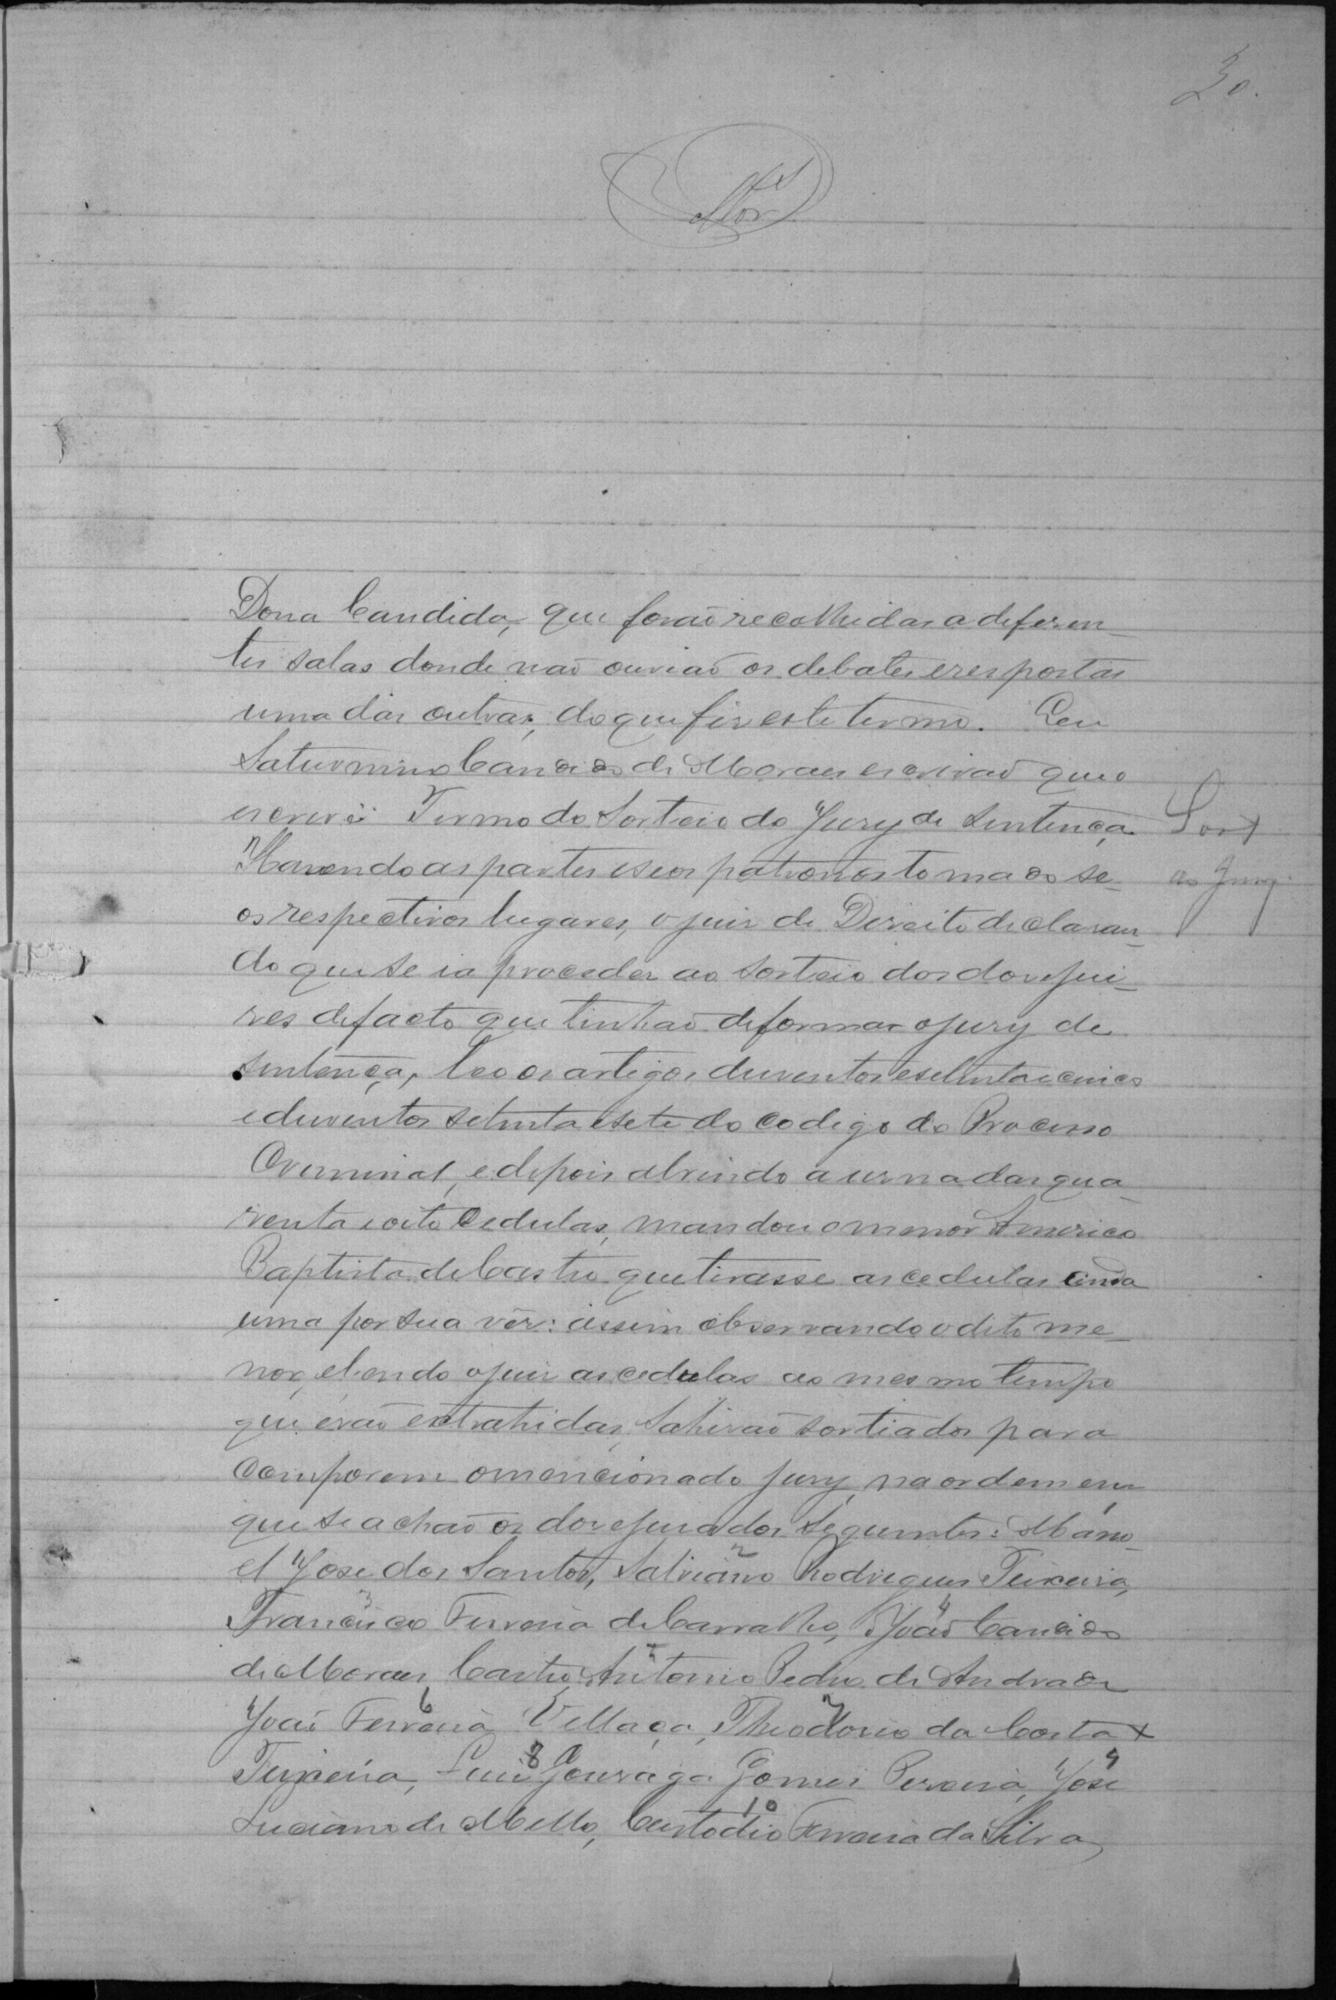 30.
Dona Candida, que forão recolhidas a diferen-
tes salas donde não ouvião os debates e respostas
uma das outras, do que fiz este termo. Eu
Saturnino Cancido de Moraes escrivão que o
escrevi. Termo do Sorteio do Jury de Sentença.
Sort
Havendo as partes e seos patronos tomado se-
do Jury
os respectivos lugares, o juiz de Direito declaran-
do que se ia proceder ao sorteio dos doze jui-
zes de facto que tinhão de formar o jury de
sentença, leo os artigos duzentos e setenta e cinco
e duzentos setenta e sete do codigo do Processo
Criminal, e depois abrindo a urna das qua-
renta e oito cedulas, mandou o menor Americo
Baptista de Castro que tirasse as cedulas cada
uma por sua vêz: assim observando o dito me-
nor, e lendo o juiz as cedulas ao mesmo tempo
que erão extrahidas, sahirão sortiados para
comporem o mencionado jury, na ordem em
que se achão os doze jurados seguintes: Mano-
el José dos Santos, Salviano 2 Rodrigues Teixeira,
Francisco 3 Ferreira de Carvalho, João 4 Cancido
de Moraes Castro, Antonio Pedro de Andrade
João Ferreira 6 Vellaça, Theodorio 7 da Costa +
Teixeira, Luiz 8 Gonzaga Gomes Pereira, José 9
Luciano de Mello, Custodio 10 Ferreira da Silva,